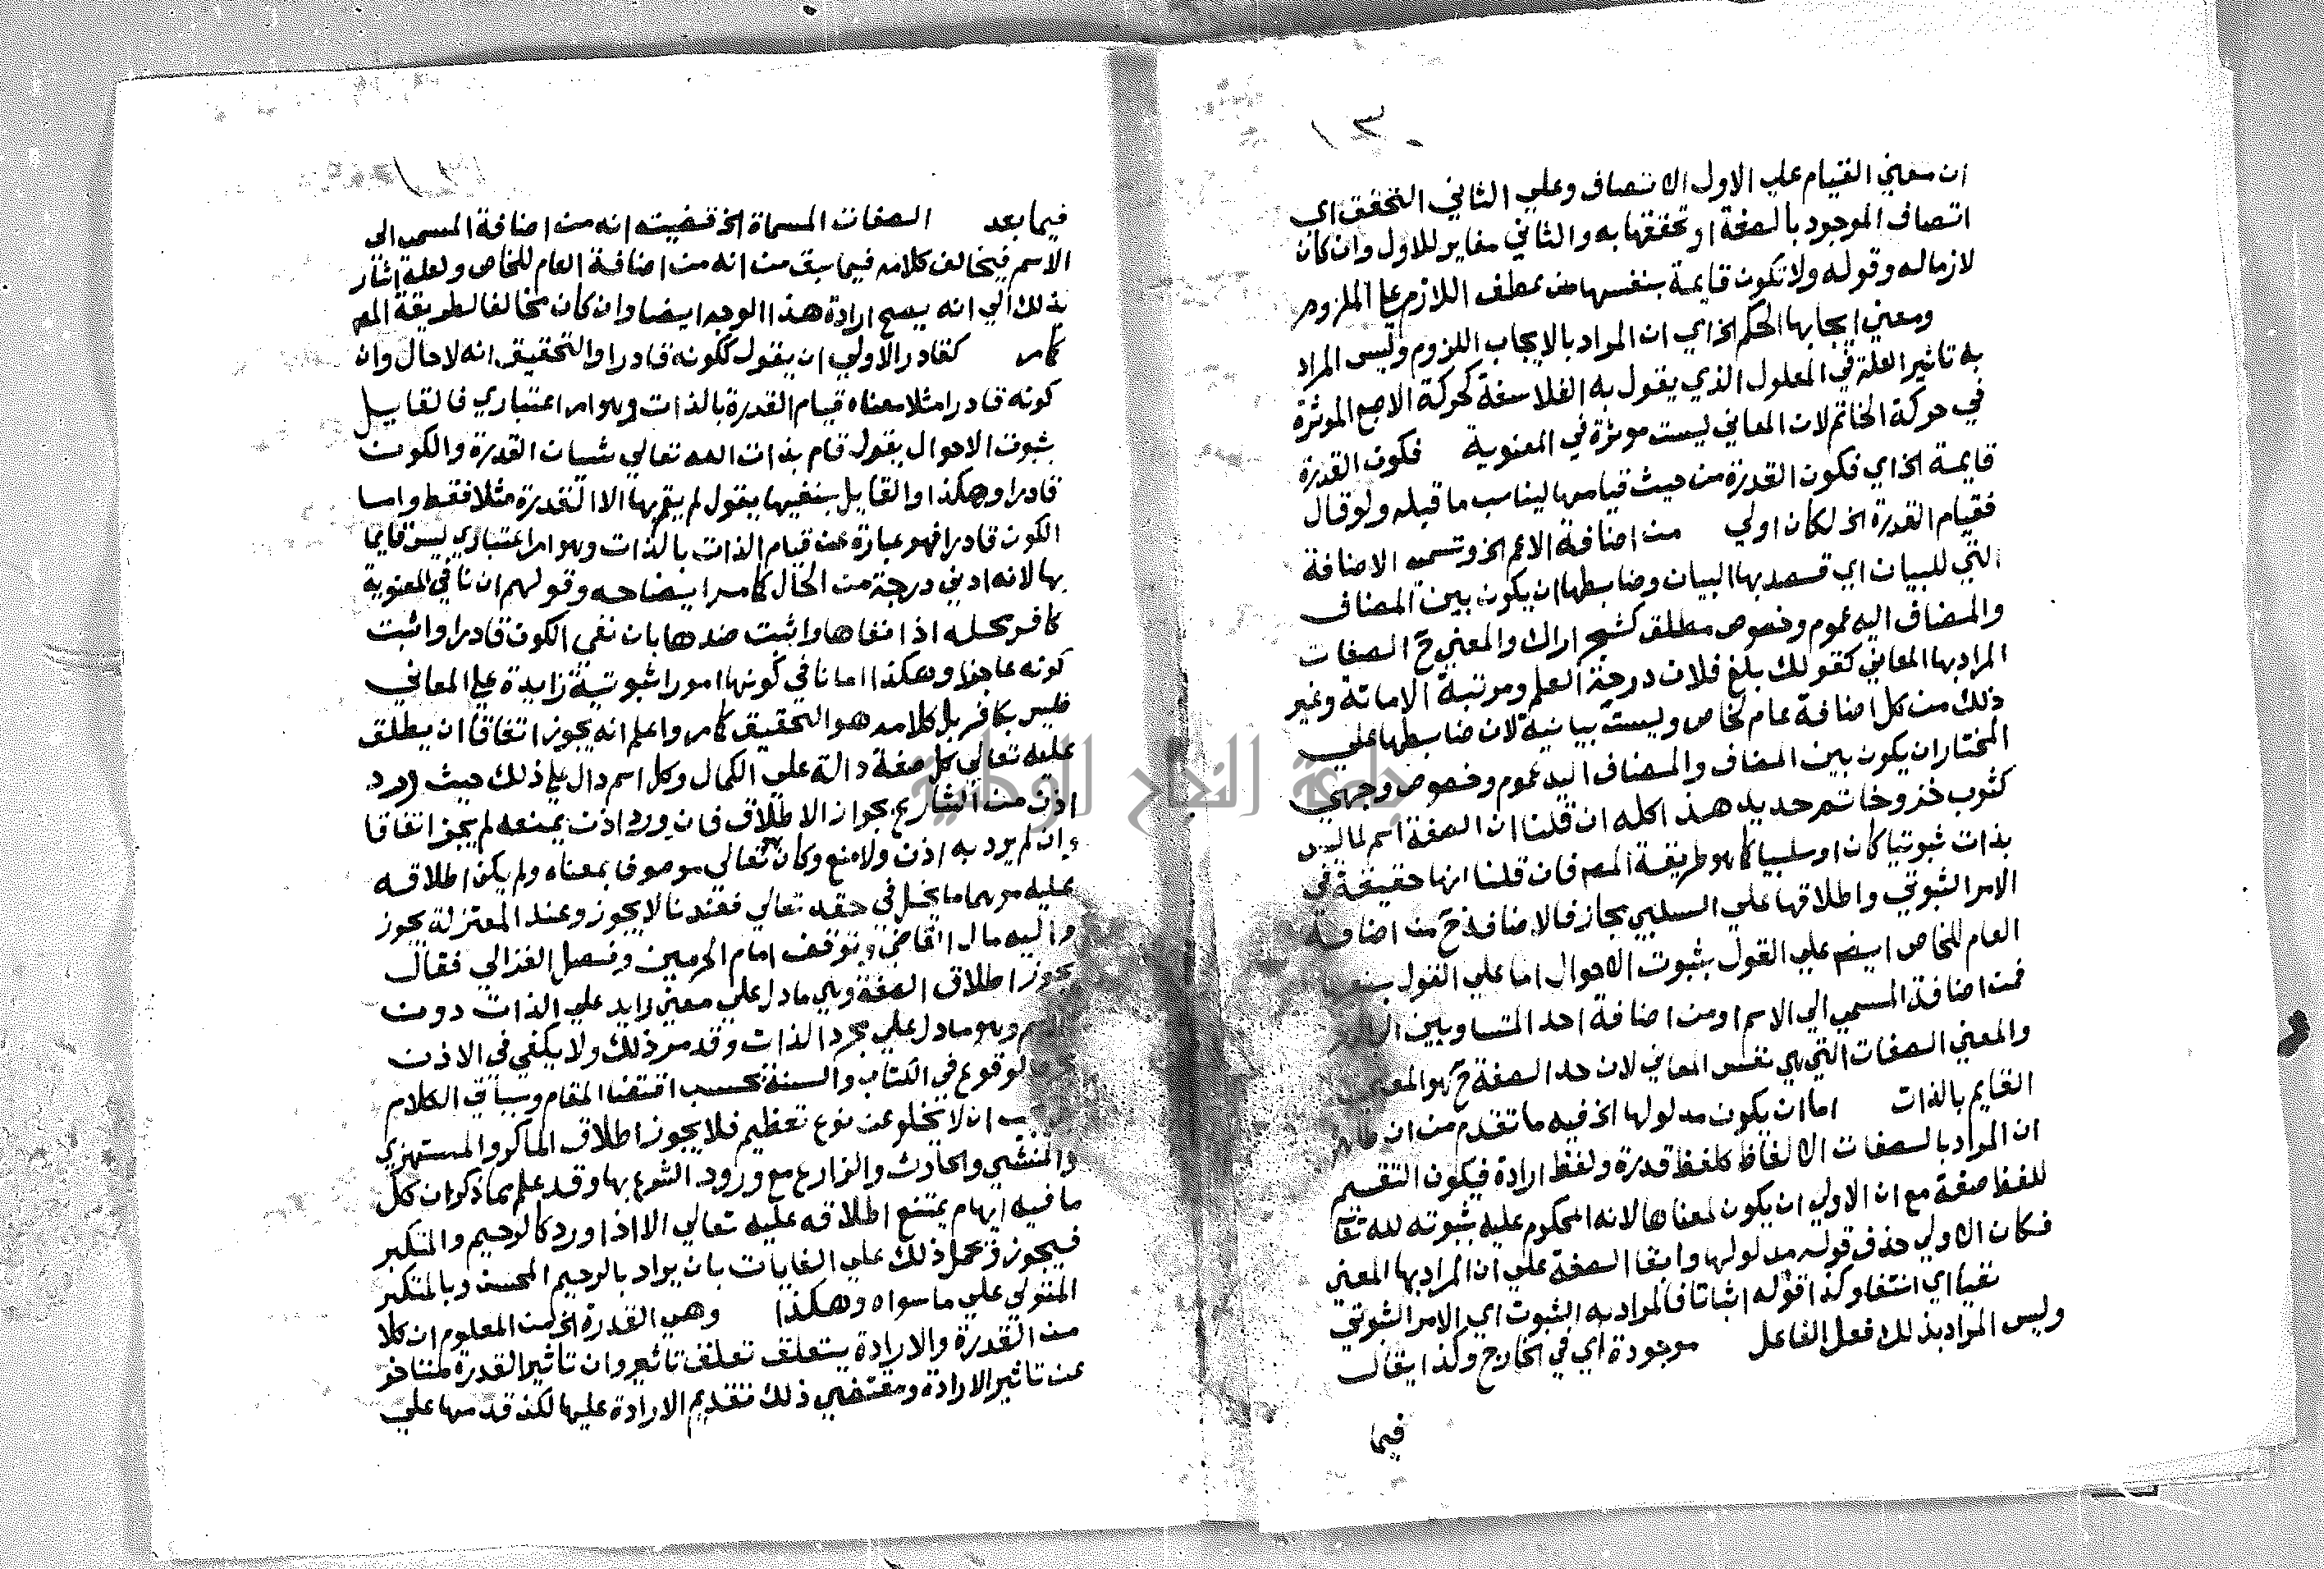 ان معني القيام علي الاول الاتصاف وعلي الثاني التحقق اي
اتصاف الموجود بالصفة او تحققها به والثاني مغاير للاول وان كان
لازما له وقوله ولا تكون قايمة بنفسها من عطف اللازم علي الملزوم
ومعني ايجابها الحكم الخ اي ان المراد بالايجاب اللزوم وليس المراد
به تاثير العلة في المعلول الذي يقول به الفلاسفة كحركة الاصبع الموثرة
في حركة الخاتم لان المعاني ليست موثرة في المعنوية فكون القدرة
قايمة الخ اي فكون القدرة من حيث قيامها ليناسب ما قبله ولو قال
فقيام القدرة الخ لكان اولي من اضافة الاعم الخ وتسمى الاضافة
التي للبيان اي قصد بها البيان وضابطها ان يكون بين المضاف
والمضاف اليه عموم وخصوص مطلق كشجر اراك والمعني ح الصفات
المراد بها المعاني كقولك بلغ فلان درجة العلم ومرتبة الامانة وغير
ذلك من كل اضافة عام لخاص وليست بيانية لان ضابطها علي
المختار ان يكون بين المضاف والمضاف اليه عموم وخصوص وجهي
كثوب خز وخاتم حديد هذا كله ان قلنا ان الصفة اسم لما ليس
بذات ثبوتيا كان او سلبيا كما هو طريقة المص فان قلنا انها حقيقة في
الامر الثبوتي واطلاقها علي السلبي مجاز فالاضافة ح من اضافة
العام للخاص ايضم علي القول بثبوت الاحوال اما علي القول بنفيها
فمن اضافة المسمي الي الاسم او من اضافة احد المتساويين
والمعني الصفات التي هي نفس المعاني لان حد الصفة ح هو المعني
القايم بالذات اما ان يكون مدلولها الخ فيه ما تقدم من ان ظاهر
ان المراد بالصفات الالفاظ كلفظ قدرة ولفظ ارادة فيكون التقسيم
للفظ صفة مع ان الاولي ان يكون لمعناها لانه المحكوم عليه بثبوته لله تعا
فكان الاولي حذف قوله مدلولها وابقا الصفة علي ان المراد بها المعني
نفيا اي انتفا وكذا قوله اثباتا فالمراد به الثبوت اي الامر الثبوتي
وليس المراد بذلك فعل الفاعل موجودة اي في الخارج وكذا يقال
فيما
فيما بعد الصفات المسماة الخ قضيته انه من اضافة المسمى الي
الاسم فيخالف كلامه فيما سبق من انه من اضافة العام للخاص ولعله اشار
بذلك الي انه يصح ارادة هذا الوجه ايضا وان كان مخالفا لطريقة المص
كما مر كقادر الاولي ان يقول ككونه قادرا والتحقيق انه لا حال وان
كونه قادرا مثلا معناه قيام القدرة بالذات وهو امر اعتباري فالقايل
بثبوت الاحوال يقول قام بذات الله تعالي شيان القدرة والكون
قادرا وهكذا والقايل بنفيها يقول لم يقم بها الا القدرة مثلا فقط واما
الكون قادرا فهو عبارة عن قيام الذات بالذات وهو امر اعتباري ليس قايما
بها لانه ادني درجة من الحال كما مر ايضاحه وقولهم ان نافي المعنوية
كافر محله اذا نفاها واثبت ضدها بان نفي الكون قادرا واثبت
كونه عاجزا وهكذا اما نافي كونها امورا ثبوتية زايدة علي المعاني
فليس بكافر بل كلامه هو التحقيق كما مر واعلم انه يجوز اتفاقا ان يطلق
عليه تعالي كل صفة دالة علي الكمال وكل اسم دال علي ذلك حيث ورد
اذن من الشارع بجواز الاطلاق فان ورد اذن بمنعه لم يجز اتفاقا
وان لم يرد به اذن ولا منع وكان تعالي موصوفا بمعناه ولم يكن اطلاقه
عليه موهما ما يخل في حقه تعالي فعندنا لا يجوز وعند المعتزلة يجوز
واليه مال القاضي وتوقف امام الحرمين وفصل الغزالي فقال
يجوز اطلاق الصفة وهي ما دل علي معني زايد علي الذات دون
الاسم وهو ما دل علي مجرد الذات وقد مر ذلك ولا يكفي في الاذن
الوقوع في الكتاب والسنة بحسب اقتضا المقام وسياق الكلام
ان لا يخلو عن نوع تعظيم فلا يجوز اطلاق الماكر والمستهزي
والمنشي والحادث والزارع مع ورود الشرع بها وقد علم بما ذكر ان كل
ما فيه ايهام يمتنع اطلاقه عليه تعالي الا اذا ورد كالرحيم والمتكبر
فيجوز ونحمل ذلك علي الغايات بان يراد بالرحيم المحسن وبالمتكبر
المتولي علي ما سواه وهكذا وهي القدرة الخ من المعلوم ان كلا
من القدرة والارادة يتعلق تعلق تاثير وان تاثير القدرة متاخر
عن تاثير الارادة ومقتضي ذلك تقديم الارادة عليها لكنه قدمها علي
جامعة النجاح الوطنية